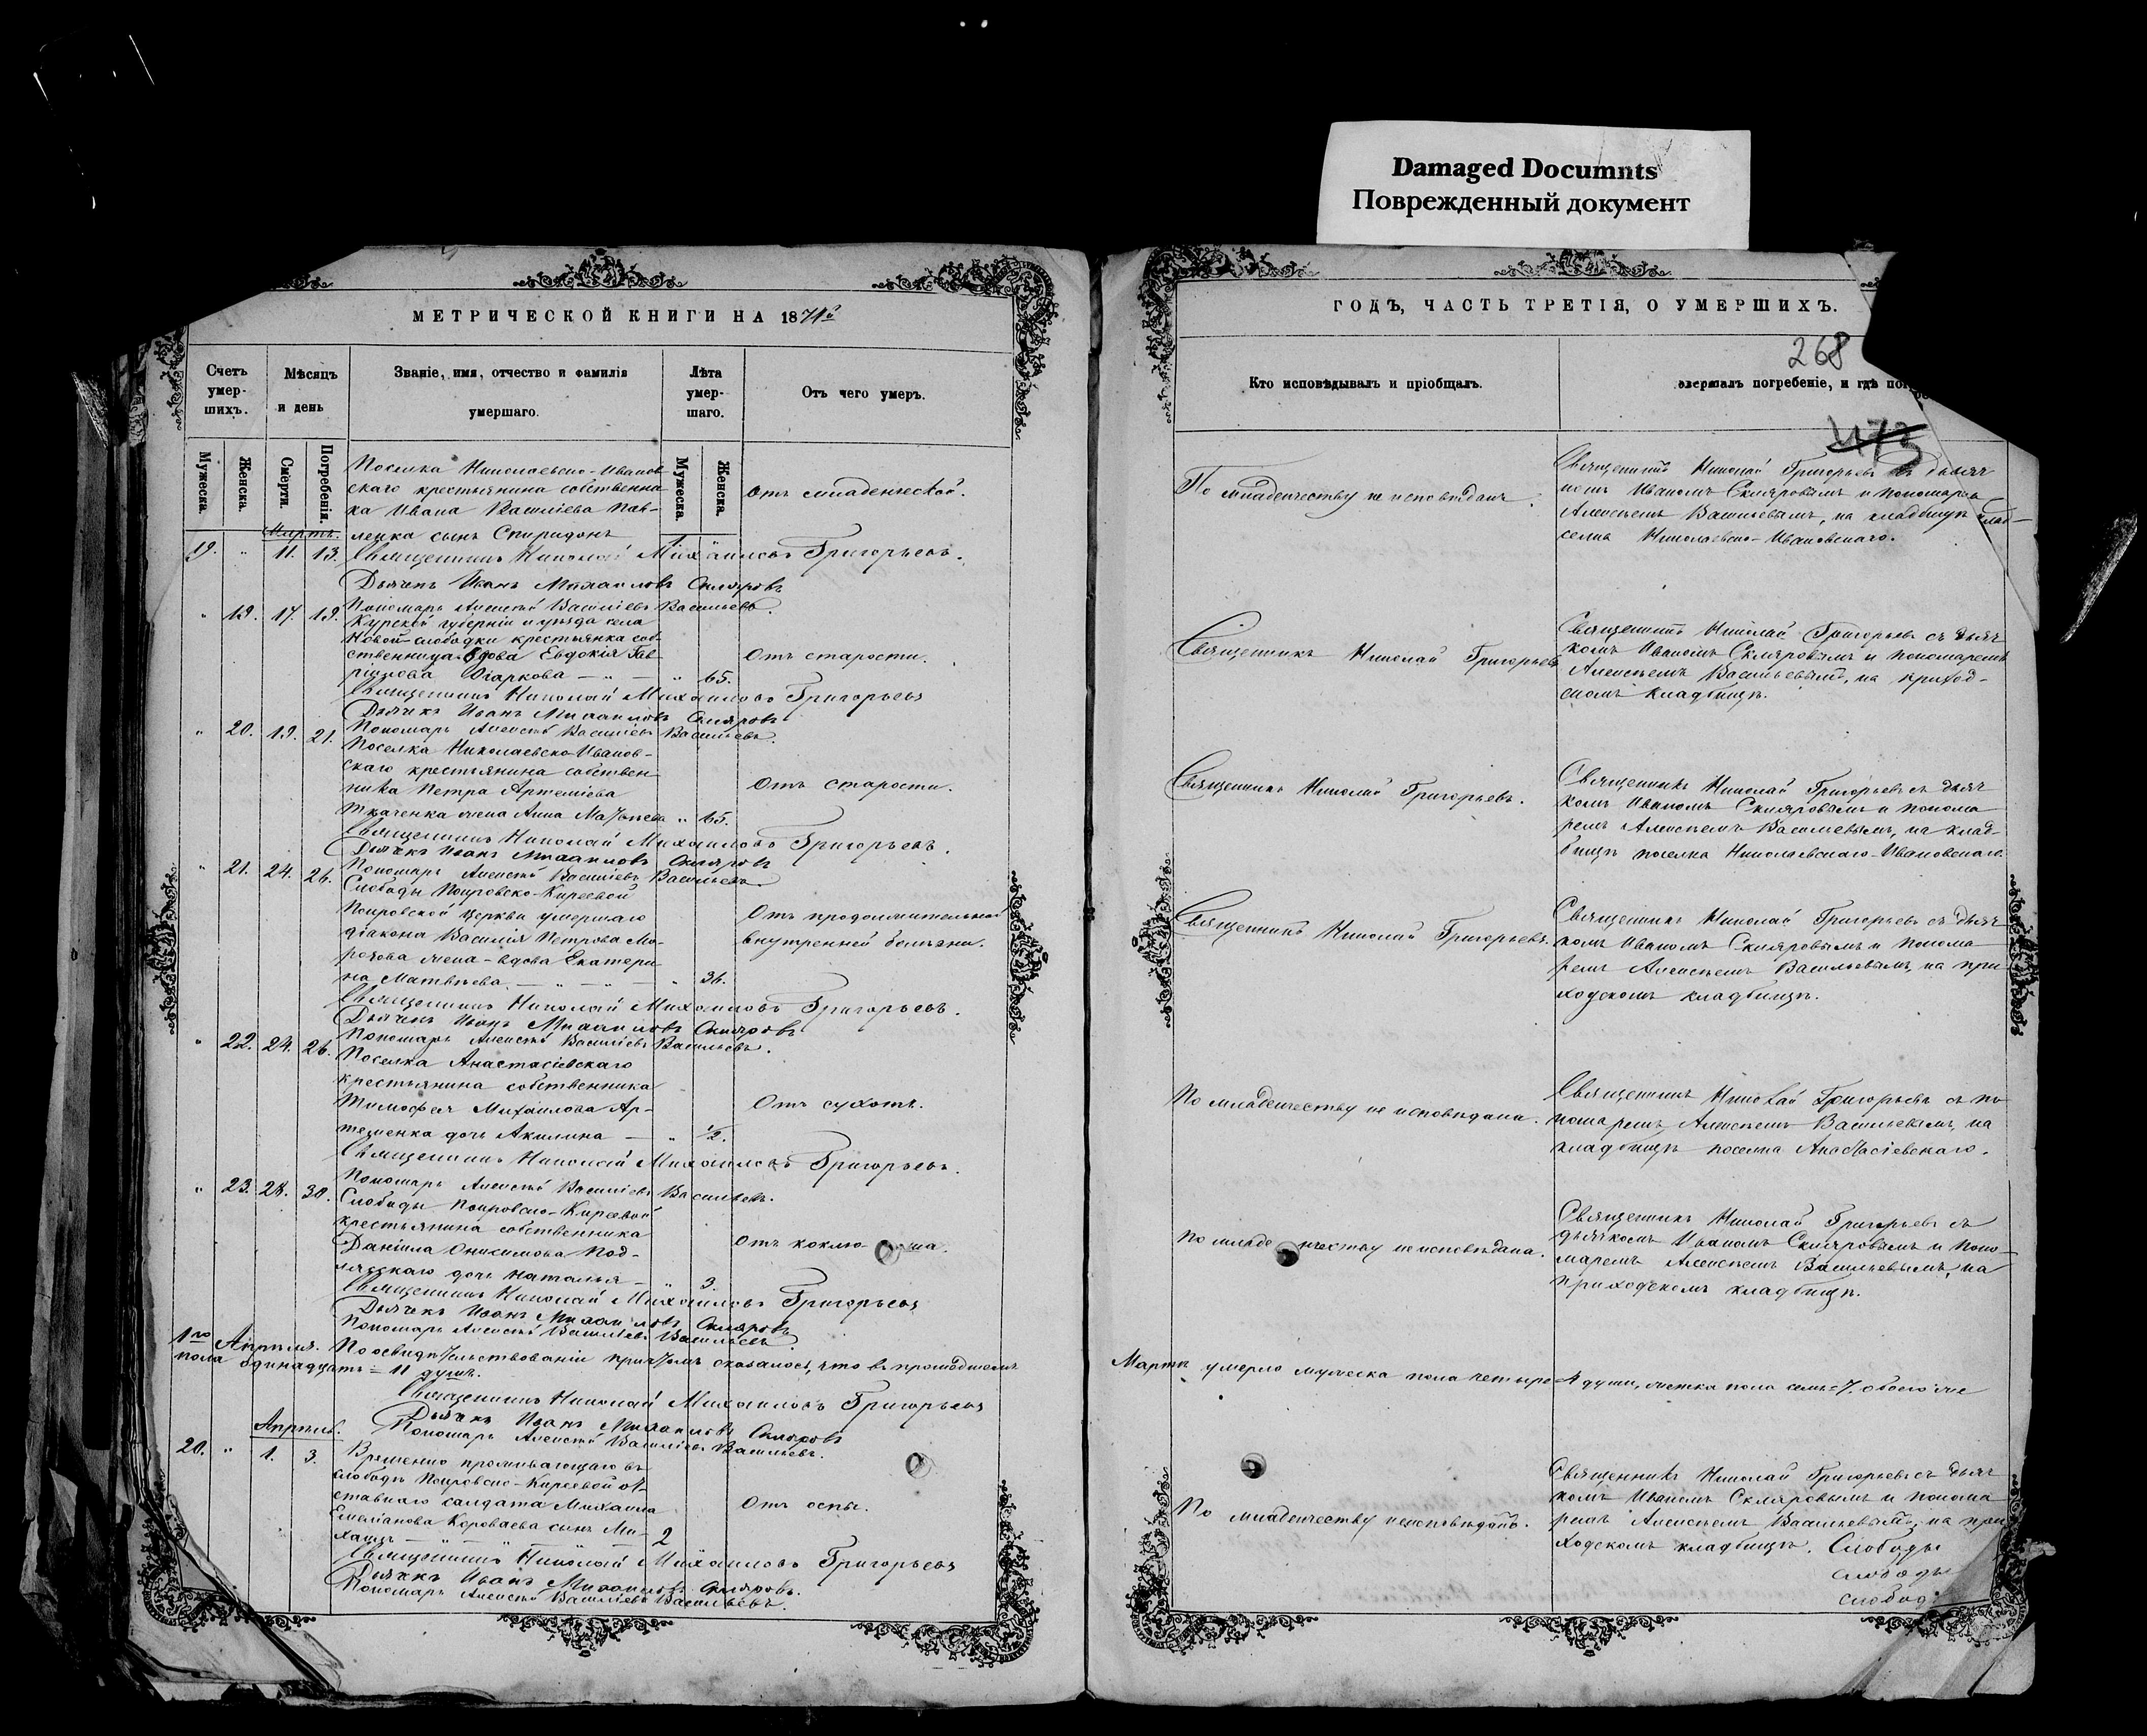 Damaged Documnts
Поврежденный документ
МЕТРИЧЕСКОЙ КНИГИ НА 1871й
Счетъ умер-шихъ.
Мѣсяцъ и день
Званіе, имя, отчество и фамилія умершаго.
Лѣта умер-шаго.
Отъ чего умеръ.
Мужеска.
Женска.
Смерти.
Погребенія.
Мужеска.
Женска.
Поселка Николаевско-Иванов
скаго крестьянина собственни
ка Ивана Василіева Пав-
ленка сынъ Спиридонъ
Отъ младенческой.
Мартъ.
19. " 11. 13. 1
Священникъ Николай Михаиловъ Григорьевъ.
Дьячекъ Иванъ Михаиловъ Скляровъ
Пономарь Алексѣй Василіевъ Васильевъ.
" 19. 17. 19.
Курской губерніи и уѣзда села
Новой-слободки крестьянка соб
ственница вдова Евдокія Гав
рілова Огаркова — " — " 65.
Отъ старости.
Священникъ Николай Михаиловъ Григорьевъ
Дьячекъ Иванъ Михаиловъ Скляровъ
Пономарь Алексѣй Василіевъ Васильевъ.
" 20. 19. 21.
Поселка Николаевско Иванов-
скаго крестьянина собствен
ника Петра Артеміева
Ткаченка жена Анна Маѳьева " 65.
Отъ старости.
Священникъ Николай Михаиловъ Григорьевъ.
Дьячекъ Иванъ Михаиловъ Скляровъ
Пономарь Алексѣй Василіевъ Васильевъ.
" 21. 24. 26.
Слободы Покровско-Киреевой
Покровской церкви умершаго
діакона Василія Петрова Мо-
розова жена-вдова Екатери
на Матвѣева. — " — " — " 36.
Отъ продолжительной
внутренней болѣзни.
Священникъ Николай Михаиловъ Григорьевъ.
Дьячекъ Иванъ Михаиловъ Скляровъ
Пономарь Алексѣй Василіевъ Васильевъ.
" 22. 24. 26.
Поселка Анастасіевскаго
крестьянина собственника
Тимофея Михаилова Ар-
теменка дочь Акилина — " 1/2.
Отъ сухотъ.
Священникъ Николай Михаиловъ Григорьевъ.
Пономарь Алексѣй Василіевъ Васильевъ.
" 23. 28. 30.
Слободы Покровско-Киреевой
крестьянина собственника
Даніила Онисимова Под-
дочь Наталья — " 3.
Отъ коклюша.
Священникъ Николай Михаиловъ Григорьевъ
Дьячекъ Иванъ Михаиловъ Скляровъ
Пономарь Алексѣй Василіевъ Васильевъ.
1го Апрѣля. По освидѣтельствованіи причтомъ оказалось, что въ прошедшемъ
пола одинадцать = 11 душъ.
Священникъ Николай Михаиловъ Григорьевъ
Дьячекъ Иванъ Михаиловъ Скляровъ
Пономарь Алексѣй Василіевъ Васильевъ.
Апрѣль.
20. " 1. 3.
Временно проживающаго въ
слободѣ Покровско-Киреевой от
ставнаго салдата Михаила
Емеліанова Короваева сынъ Ми-
хаилъ — " — " — 2
Отъ оспы.
Священникъ Николай Михаиловъ Григорьевъ
Дьячекъ Иванъ Михаиловъ Скляровъ.
Пономарь Алексѣй Василіевъ Васильевъ.
ГОДЪ, ЧАСТЬ ТРЕТІЯ, О УМЕРШИХЪ.
268
Кто исповѣдывалъ и пріобщалъ.
совершалъ погребеніе, и гдѣ
473
По младенчеству не исповѣданъ.
Священникъ Николай Григорьевъ съ дьяч
комъ Иваномъ Скляровымъ и пономаремъ
Алексѣемъ Васильевымъ, на кладбищѣ
селка Николаевско-Ивановскаго.
Священникъ Николай Григорьевъ
Священникъ Николай Григорьевъ съ дьяч
комъ Иваномъ Скляровымъ и пономаремъ
Алексѣемъ Васильевымъ, на приход-
скомъ кладбищѣ.
Священникъ Николай Григорьевъ.
Священникъ Николай Григорьевъ съ дьяч
комъ Иваномъ Скляровымъ и понома
ремъ Алексѣемъ Васильевымъ, на клад-
бищѣ поселка Николаевскаго-Ивановскаго.
Священникъ Николай Григорьевъ.
Священникъ Николай Григорьевъ съ дьяч
комъ Иваномъ Скляровымъ и понома
ремъ Алексѣемъ Васильевымъ, на при
ходскомъ кладбищѣ.
По младенчеству не исповѣдана.
Священникъ Николай Григорьевъ съ по
номаремъ Алексѣемъ Васильевымъ, на
кладбищѣ поселка Анастасіевскаго.
По младенчеству не исповѣдана.
Священникъ Николай Григорьевъ съ
дьячкомъ Иваномъ Скляровымъ и поно-
маремъ Алексѣемъ Васильевымъ, на
приходскомъ кладбищѣ.
Мартѣ умерло мужеска пола четыре 4 души, женска пола семь = 7. обоего же
По младенчеству неисповѣданъ.
Священникъ Николай Григорьевъ съ дьяч
комъ Иваномъ Скляровымъ и понома
ремъ Алексѣемъ Васильевымъ, на при
ходскомъ кладбищѣ. Слободы
слободы
слобод